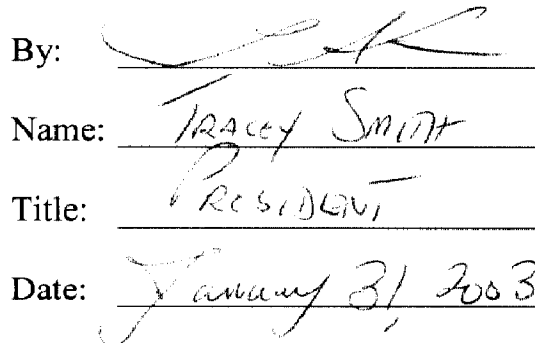 By:
Name: TRACEY SMITH
Title: PRESIDENT
Date: January 31, 2003